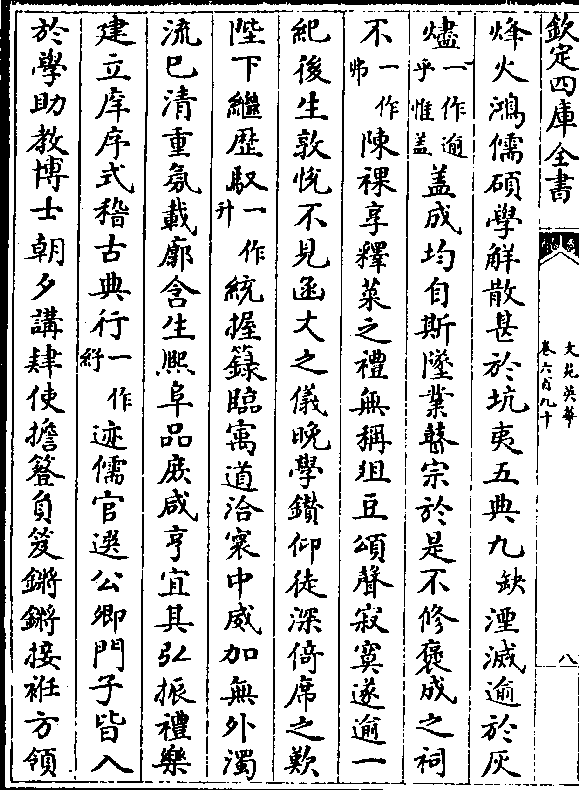 欽定四庫全書
文苑英華
卷六百九十
八
烽火鴻儒碩學解散甚於坑夷五典九缺湮滅逾於灰
燼一作逾乎惟盖盖成均自斯墜業瞽宗於是不修褒成之祠
不一作弗陳祼享釋菜之禮無稱俎豆頌聲寂寞遂逾一
紀後生敦悅不見函丈之儀晚學鑽仰徒深倚席之歎
陛下繼歴馭一作升統握籙臨寓道洽寰中威加無外濁
流已清重氛載廓含生熈阜品庶咸亨宜其弘振禮樂
建立庠序式稽古典行一作紆迹儒官選公卿門子皆入
於學助教博士朝夕講肄使擔簦負笈鏘鏘接袵方領